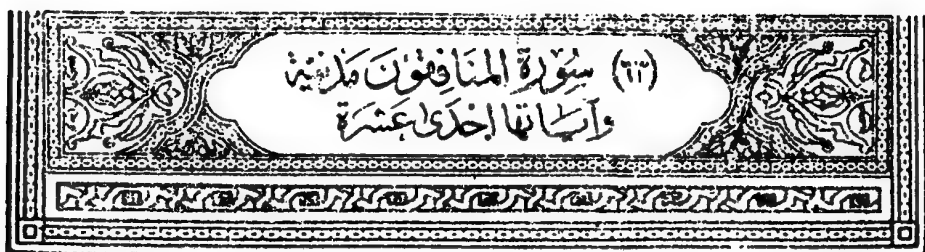 (٦٣) سُورَةِ المنَافِقُونَ مَدَنِيّة
وَآيَاتهَا إِحْدَى عَشَرَةَ